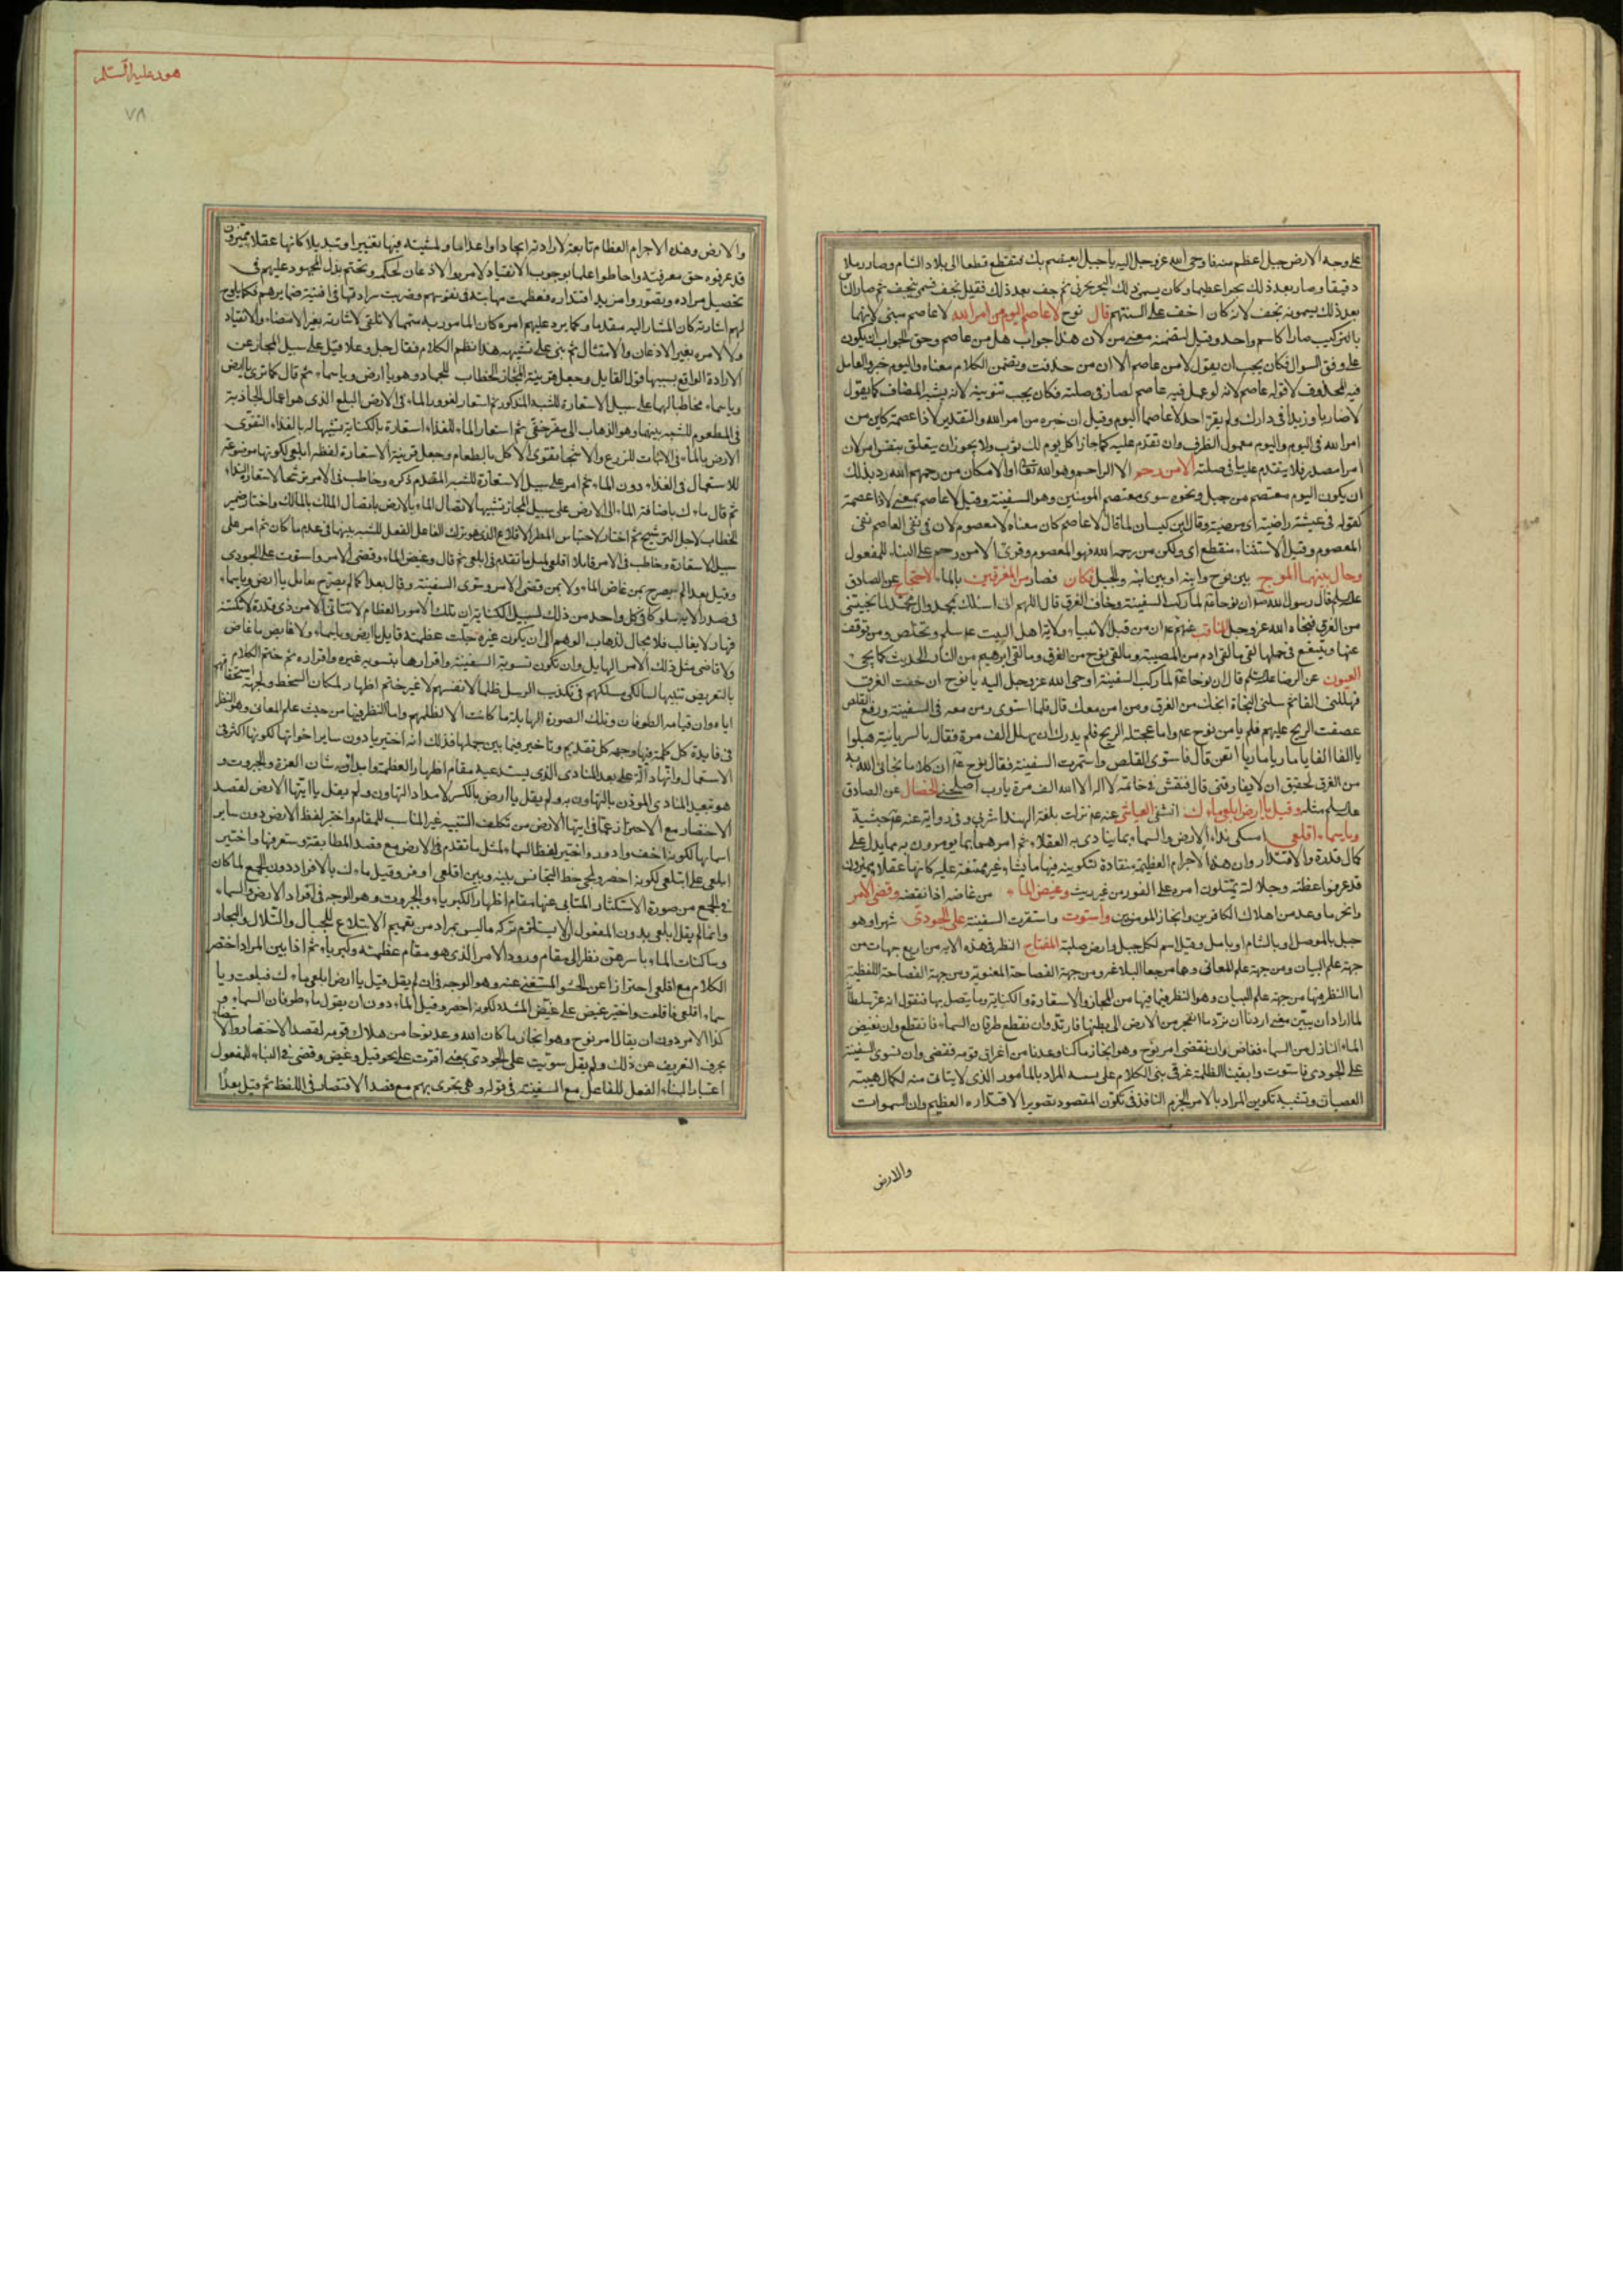 على وجه الارض جبل اعظم منه فاوحى الله عز وجل اليه يا جبل ايعتصم بك مني فتقطع قطعا الى بلاد الشام وصار رملا
دقيقا وصار بعد ذلك بحرا عظيما وكان يسمى ذلك البحر بحر ني ثم جف بعد ذلك فقيل ني جف فسمى بنيجف ثم صار الناس
بعد ذلك يسمونه نجف لانه كان اخف على السنتهم قال نوح لا عاصم اليوم من امر الله لا عاصم مبنى لانهما
بالتركيب صارا كاسم واحد وقيل لتضمنه معنى من لان هذا جواب هل من عاصم وحق الجواب ان يكون
على وفق السوال فكان يجب ان يقول لا من عاصم الا ان من حذفت وتضمن الكلام معناه واليوم خبر والعامل
فيه المحذوف لا قوله عاصم لانه لو عمل فيه عاصم لصار في صلته فكان يجب تنوينه لانه يشبه المضاف كما يقول
لا ضاربا زيدا في دارك ولم يقرء احد لا عاصما اليوم وقيل ان خبره من امر الله والتقدير لا ذا عصمة كاين من
امر الله في اليوم واليوم معمول الظرف وان تقدم عليه كما جاز اكل يوم لك ثوب ولا يجوز ان يتعلق بنفس امر لان
امرا مصدر فلا يتقدم عليه ما في صلته الا من رحم الا الراحم وهو الله تعالى او الا مكان من رحمهم الله رد بذلك
ان يكون اليوم معتصم من جبل ونحوه سوى معتصم المومنين وهو السفينة وقيل لا عاصم بمعنى لا ذا عصمة
كقوله في عيشة راضية اى مرضية وقال ابن كيسان لما قال لا عاصم كان معناه لا معصوم لان في نفي العاصم نفي
المعصوم وقيل الاستثناء منقطع اى ولكن من رحمه الله فهو المعصوم وقرئ الا من رحم على البناء للمفعول
وحال بينهما الموج بين نوح وابنه او بين ابنه والجبل فكان فصار من المغرقين بالماء الاحتجاج عن الصادق
عليه السلم قال رسول الله ص ان نوحا لما ركب السفينة وخاف الغرق قال اللهم انى اسئلك بمحمد وال محمد لما نجيتنى
من الغرق فنجاه الله عز وجل المناقب عنهم ع ان من قبل الانبياء ولاية اهل البيت ع سلم وتخلص ومن توقف
عنها وتتعتع في حملها لقى ما لقى ادم من المصيبة وما لقى نوح من الغرق وما لقى ابرهيم من النار الحديث كما يجئ
العيون عن الرضا عليه السلم قال ان نوحا لما ركب السفينة اوحى الله عز وجل اليه يا نوح ان خفت الغرق
فهللنى الفا ثم سلنى النجاة انجك من الغرق ومن امن معك قال فلما استوى ومن معه في السفينة ورفع القلص
عصفت الريح عليهم فلم يامن نوح ع واما عجلته الريح فلم يدرك ان يهلل الف مرة فقال بالسريانية هيلوا
يا الفا الفا يا ماريا ماريا اتقن قال فاستوى القلص واستمرت السفينة فقال نوح ع ان كلاما نجانى الله به
من الغرق لحقيق ان لا يفارقنى قال فنقش في خاتمه لا اله الا الله الف مرة يا رب اصلحنى الخصال عن الصادق
عليه السلم مثله وقيل يا ارض ابلعى ماءك انشفى العياشى عنه ع نزلت بلغة الهند اشربى وفي رواية عنه حبشية
ويا سماء اقلعى امسكى نداء الارض والسماء بما ينادى به العقلاء ثم امرهما بما يومرون به مما يدل على
كمال قدرة والاقتدار وان هذه الاجرام العظيمة منقادة لتكوينه فيها ما يشاء غير ممتنعة عليه كانها عقلاء مميزون
قد عرفوا عظمته وجلالته يمتثلون امره على الفور من غير ريث وغيض الماء من غاضه اذا نقصه وقضى الامر
وانجز ما وعد من اهلاك الكافرين وانجاز المومنين واستوت واستقرت السفينة على الجودى شهرا وهو
جبل بالموصل او بالشام او بامل وقيل اسم لكل جبل وارض صلبة المفتاح النظر في هذه الاية من اربع جهات من
جهة علم البيان ومن جهة علم المعانى وهما مرجعا البلاغة ومن جهة الفصاحة المعنوية ومن جهة الفصاحة اللفظية
اما النظر فيها من جهة علم البيان وهو النظر فيما فيها من المجاز والاستعارة والكناية وما يتصل بها فنقول انه عز سلطانه
لما اراد ان يبين معنى اردنا ان نرد ما انفجر من الارض الى بطنها فارتد وان نقطع طوفان السماء فانقطع وان نغيض
الماء النازل من السماء فغاض وان نقضى امر نوح وهو انجاز ما كنا وعدنا من اغراق قومه فقضى وان نسوى السفينة
على الجودى فاستوت وابقينا الظلمة غرقى بنى الكلام على تشبيه المراد بالمامور الذى لا يتاتى منه لكمال هيبته
العصيان وتشبيه تكوين المراد بالامر الجزم النافذ في تكون المقصود تصوير الاقتداره العظيم وان السموات
والارض
هود عليه السلم
٧٨
والارض وهذه الاجرام العظام تابعة لارادته ايجادا واعداما ولمشيته فيها تغييرا وتبديلا كانها عقلاء مميزون
قد عرفوه حق معرفته واحاطوا علما بوجوب الانقياد لامره والاذعان لحكمه وتحتم بذل المجهود عليهم في
تحصيل مراده وتصوروا مزيد اقتداره فعظمت مهابته في نفوسهم وضربت سرادقها في افنية ضمايرهم فكما يلوح
لهم اشارته كان المشار اليه مقدما وكما يرد عليهم امره كان المامور به متمما لا تلقى لاشارته بغير الامضاء والانقياد
ولا لامره بغير الاذعان والامتثال ثم بنى على تشبيهه هذا نظم الكلام فقال جل وعلا قيل على سبيل المجاز عن
الارادة الواقع بسببها قول القايل وجعل قرينة المجاز الخطاب للجماد وهو يا ارض ويا سماء ثم قال كما ترى يا ارض
ويا سماء مخاطبا لهما على سبيل الاستعارة للشبه المذكور ثم استعار لغور الماء في الارض البلع الذى هو اعمال الجاذبة
في المطعوم للشبه بينهما وهو الذهاب الى مقر خفى ثم استعار الماء للغذاء استعارة بالكناية تشبيها له بالغذاء لتقوى
الارض بالماء في الانبات للزرع والاشجار تقوى الاكل بالطعام وجعل قرينة الاستعارة لفظه ابلعى لكونها موضوعة
للاستعمال في الغذاء دون الماء ثم امر على سبيل الاستعارة للشبه المقدم ذكره وخاطب في الامر ترشحا لاستعارة النداء
ثم قال ماءك باضافة الماء الى الارض على سبيل المجاز تشبيها لاتصال الماء بالارض باتصال الملك بالمالك واختار ضمير
الخطاب لاجل الترشيح ثم اختار لاحتباس المطر الاقلاع الذى هو ترك الفاعل الفعل للشبه بينهما في عدم ما كان ثم امر على
سبيل الاستعارة وخاطب في الامر قايلا اقلعى لمثل ما تقدم في ابلعى ثم قال وغيض الماء وقضى الامر واستوت على الجودى
وقيل بعدا لم يصرح بمن غاض الماء ولا بمن قضى الامر وسوى السفينة وقال بعدا كما لم يصرح بقايل يا ارض ويا سماء
في صدر الاية سلوكا في كل واحد من ذلك لسبيل الكناية ان تلك الامور العظام لا تتاتى الا من ذى قدرة لا تكتنه
قهار لا يغالب فلا مجال لذهاب الوهم الى ان يكون غيره جلت عظمته قايل يا ارض ويا سماء ولا غايض ما غاض
ولا قاضى مثل ذلك الامر الهايل وان تكون تسوية السفينة واقرارها بتسوية غيره واقراره ثم ختم الكلام
بالتعريض تنبيها لسالكى مسلكهم في تكذيب الرسل ظلما لانفسهم لا غير ختم اظهار لمكان السخط ولجهة استحقاقهم
اياه وان قيامه الطوفان وتلك الصورة الهايلة ما كانت الا لظلمهم واما النظر فيها من حيث علم المعانى وهو النظر
في فايدة كل كلمة فيها وجهة كل تقديم وتاخير فيما بين جملها فذلك انه اختير يا دون ساير اخواتها لكونها اكثر في
الاستعمال وانها دالة على بعد المنادى الذى يستدعيه مقام اظهار العظمة وابداء شان العزة والجبروت و
هو تبعيد المنادى الموذن بالتهاون به ولم يقل يا ارض بالكسر لامداد التهاون ولم يقل يا ايتها الارض لقصد
الاختصار مع الاحتراز عما في ايتها الارض من تكلف التنبيه غير المناسب للمقام واختير لفظ الارض دون ساير
اسمائها لكونه اخف وادور واختير لفظ السماء لمثل ما تقدم في الارض مع قصد المطابقة وستعرفها واختير
ابلعى على ابتلعى لكونه اخصر ولمجئ حظ التجانس بينه وبين اقلعى اوفر وقيل ماءك بالافراد دون الجمع لما كان
في الجمع من صورة الاستكثار المتابى عنها مقام اظهار الكبرياء والجبروت وهو الوجه في افراد الارض والسماء
وانما لم يقل ابلعى بدون المفعول ان لا يستلزم تركه ما ليس بمراد من تعميم الابتلاع للجبال والتلال والبحار
وساكنات الماء باسرهن نظرا الى مقام ورود الامر الذى هو مقام عظمته وكبرياء ثم اذا بين المراد اختصر
الكلام مع اقلعى احترازا عن الحشو المستغنى عنه وهو الوجه في ان لم يقل وقيل يا ارض ابلعى ماءك فبلعت ويا
سماء اقلعى فاقلعت واختير غيض على غيض المشدد لكونه اخصر وقيل الماء دون ان يقول ماء طوفان السماء و
كذا الامر دون ان يقال امر نوح وهو انجاز ما كان الله وعد نوحا من هلاك قومه لقصد الاختصار والاستغناء
بحرف التعريف عن ذلك ولم يقل سويت على الجودى بمعنى اقرت على نحو قيل وغيض وقضى في البناء للمفعول
اعتبارا لبناء الفعل للفاعل مع السفينة في قوله وهى تجرى بهم مع قصد الاقتصار في اللفظ ثم قيل بعدا